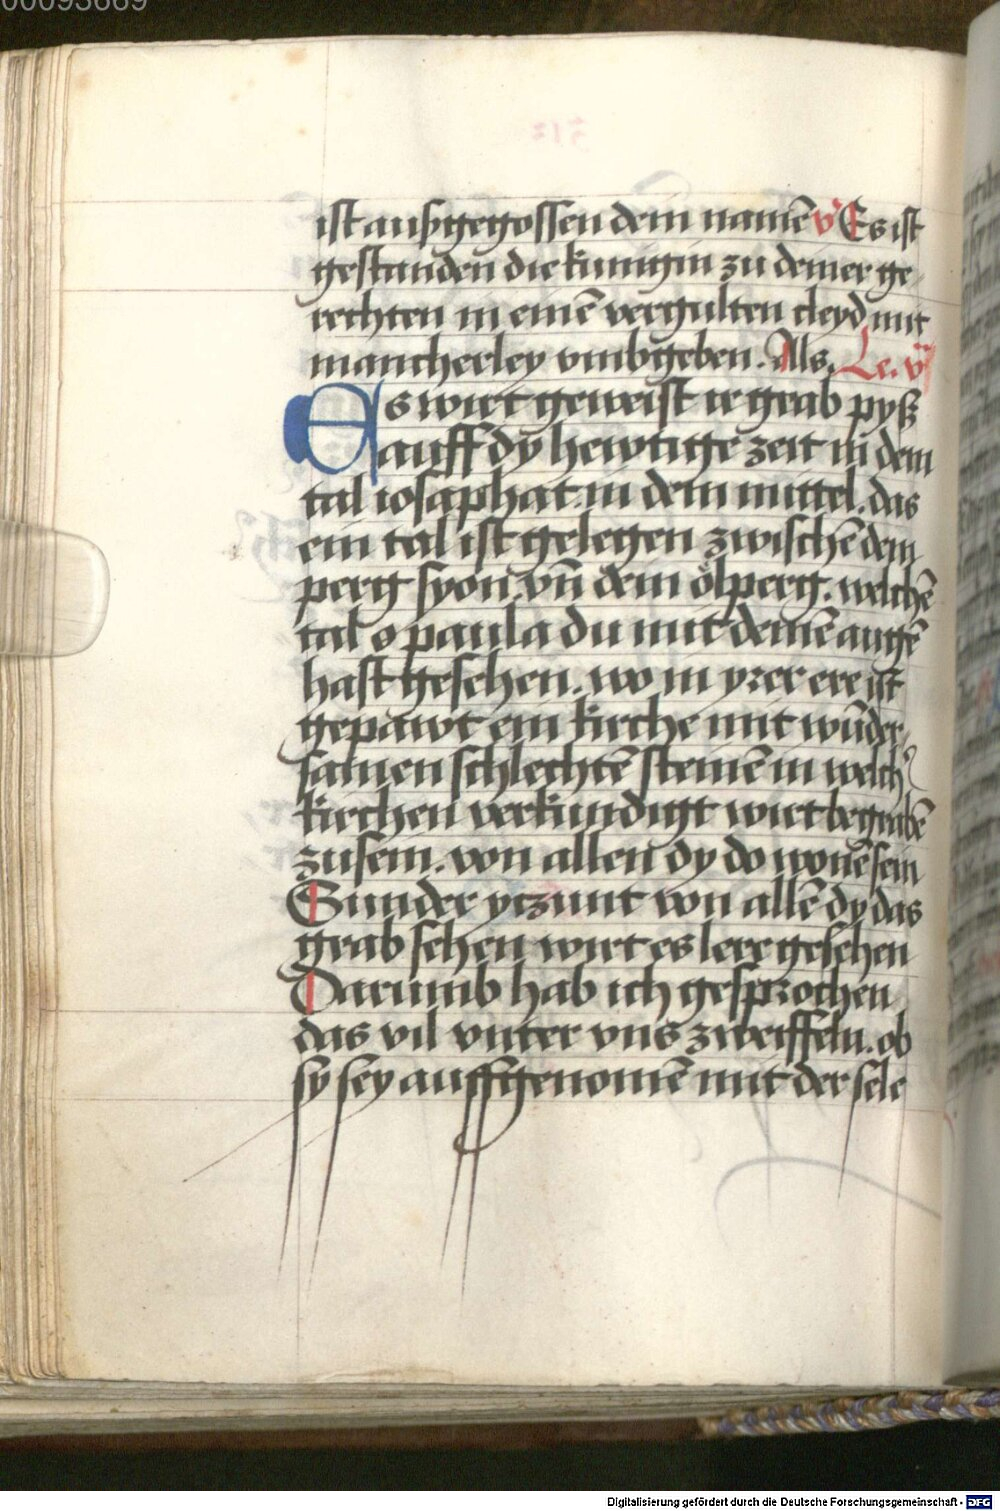 00093669
ist außgegossen dein namē v̓ Es ist
gestanden die kunigin zu deiner ge
rechten in einē vergulten cleyd mit
mancherley vmbgeben. Als. Le. v
Es wirt geweist ir grab pyß
auff dy hewtige zeit in dem
tal iosaphat in dem mittel. das
ein tal ist gelegen zwischē dem
perg syon. vn̄ dem ölperg. welchē
tal o paula du mit deinē augē
hast gesehen. wo in yrer ere ist
gepawt ein kirche mit wūder
samen schlechtē steinē in welch
kirchen verkundigt wirt begrabē
zu sein. von allen dy do wonē sein
Sunder yczunt von allē dy das
grab sehen wirt es lere gesehen
Darumb hab ich gesprochen
das vil vnter vns zweiffeln. ob
sy sey auffgenomē mit der sele
Digitalisierung gefördert durch die Deutsche Forschungsgemeinschaft - DFG